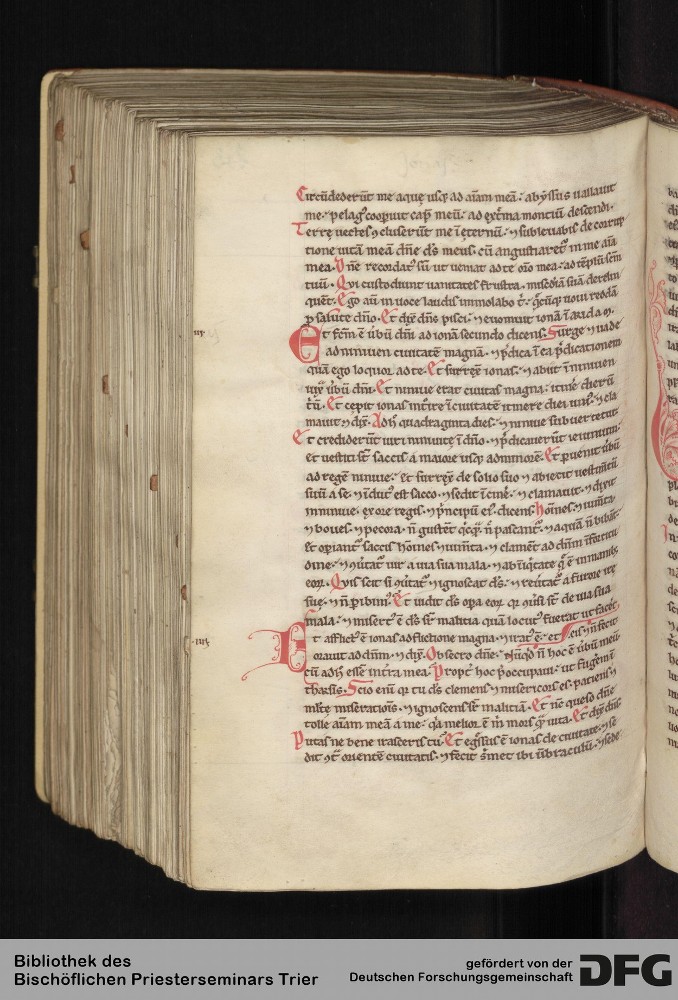 Circūdederūt me aquę usq; ad aīam meā. abyssus uallauit
me. pelag' coopuit cap̄ meū. ad ext̄ma montiū descendi.
Terrę uectes ɔcluserūt me ī ęternū. ⁊ subleuabis de corrup
tione uitā meā dn̄e ds̄ meus. cū angustiaret' in me aīa
mea. Dn̄e recordat' sū ut ueniat ad te or̄o mea. ad tēplū sc̄m
tuū. Qui custodiunt uanitates frustra. misc̄diā suā derelin
quēt. Ego aū in uoce laudis immolabo t'. q̄cūq; uoui reddā
ꝑ salute dn̄o. Et dix̄ dn̄s pisci. ⁊ euomuit ionā ī aridam.
iii
Et fc̄m ē ūbū dn̄i ad ionā secundo dicens. Surge ⁊ uade
ad niniuen ciuitatē magnā. ⁊ p̄dica ī ea p̄dicationem
quā ego loquor ad te. Et surrex̄ ionas. ⁊ abiit ī niniuen
iux̄ ūbū dn̄i. Et niniue erat ciuitas magna. itiñe dierū
t'ū. Et cępit ionas int̄re ī ciuitatē itinere diei uni'. ⁊ cla
mauit ⁊ dix̄. Adh' quadraginta dies. ⁊ niniue subuertetur
Et crediderūt uiri niniuitę ī dn̄o. ⁊ p̄dicauerūt ieiuniū.
et uestiti st̄ saccis a maiore usq; ad minorē. Et ꝑuenit ūbū
ad regē niniue. et surrex̄ de solio suo ⁊ abiecit uestim̄tū
suū a se. ⁊ īdut' est sacco. ⁊ sedit ī cinē. ⁊ clamauit. ⁊ dixit
in niniue. ex ore regis. ⁊ p̄ncipū ei'. dicens. Hoīnes ⁊ ium̄ta
⁊ boues. ⁊ pecora. n̄ gustēt q̄cq̄. n̄ pascant'. ⁊ aquā n̄ bibāt.
et opiant' saccis hoīnes ⁊ ium̄ta. ⁊ clamēt ad dn̄m ī fortitu
dine. ⁊ ɔūtat' uir a uia sua mala. ⁊ ab iniq̄tate q̄ ē in manib;
eoꝝ. Quis scit si ɔūtat' ⁊ ignoscat ds̄. ⁊ reūtat' a furore irę
suę. ⁊ n̄ ꝑibim'. Et uidit ds̄ oꝑa eoꝝ q̄ ɔūsi st̄ de uia sua
mala. ⁊ misert' ē ds̄ sr̄ malitiā quā locut' fuerat ut facēt
iiii
Et afflict' ē ionas afflictione magna. ⁊ irat' ē. et eis ⁊ n̄ fecit
orauit ad dn̄m. ⁊ dix̄. Obsecro dn̄e. nūq̄d n̄ hoc ē ūbū meū
cū adh' essē in t̄ra mea. Propt̄ hoc p̄occupaui. ut fugerē ī
tharsis. Scio enī q̄ tu ds̄ clemens ⁊ misericors es. patiens ⁊
mltę miseratiōis. ⁊ ignoscens sr̄ malitiā. Et nc̄ queso dn̄e
tolle aīam meā a me. q̄a melior ē m̄ mors q̄ uita. Et dix̄ dn̄s.
Putas ne bene irasceris tu. Et eḡssus ē ionas de ciuitate. ⁊ se
dit ɔt̄ orientē ciuitatis. ⁊ fecit s̄met ibi ūbraculū. ⁊ sede
Bibliothek des
Bischöflichen Priesterseminars Trier
gefördert von der
Deutschen Forschungsgemeinschaft
DFG